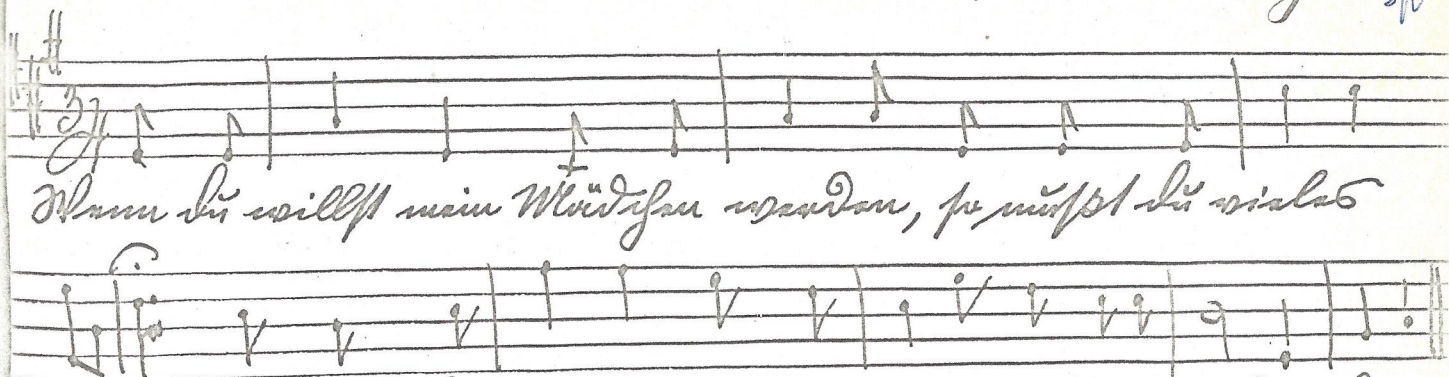 Wenn du willst mein Mädchen werden, so mußt du vieles